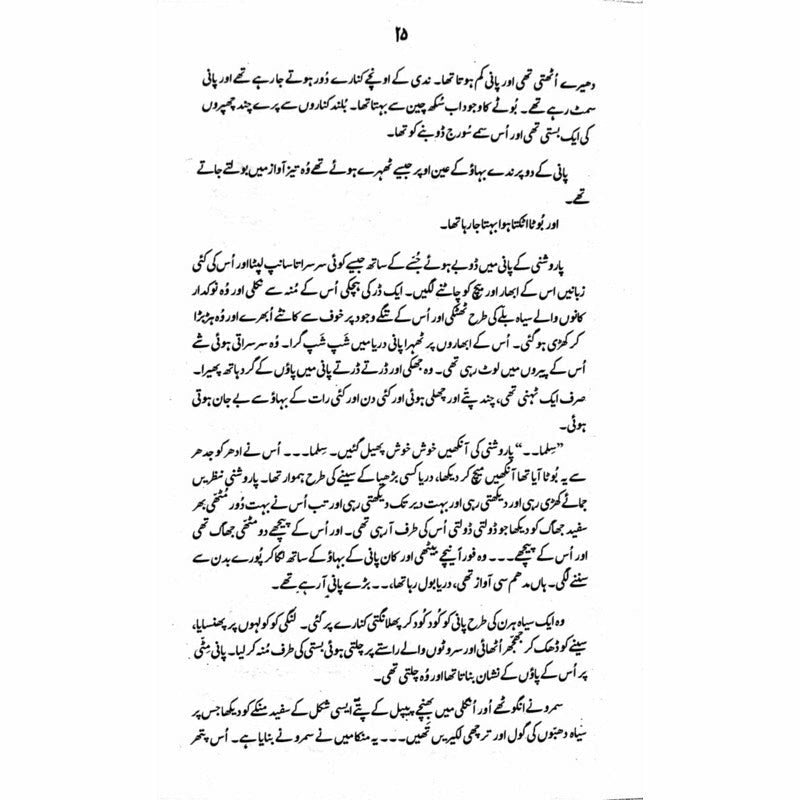 ۲۵
دھیرے اُٹھتی تھی اور پانی کم ہوتا تھا۔ ندی کے اونچے کنارے دُور ہوتے جا رہے تھے اور پانی
سمٹ رہے تھے۔ بُوٹے کا وجود اب سُکھ چین سے بہتا تھا۔ بُلند کناروں سے پرے چند چھپروں
کی ایک بستی تھی اور اُس سمے سُورج ڈوبنے کو تھا۔
پانی کے دو پرندے بہاؤ کے عین اوپر جیسے ٹھہرے ہوئے تھے وُہ تیز آواز میں بولتے جاتے
تھے۔
اور بُوٹا اٹکتا ہوا بہتا جا رہا تھا۔
پاروشنی کے پانی میں ڈوبے ہوئے جُثے کے ساتھ جیسے کوئی سرسراتا سانپ لپٹا اور اُس کی کئی
زبانیں اس کے ابھار اور بیچ کو چاٹنے لگیں۔ ایک ڈر کی ہچکی اُس کے مُنہ سے نکلی اور وُہ نوکدار
کانوں والے سیاہ بلے کی طرح ٹھٹکی اور اُس کے ننگے وجود پر خوف سے کانٹے اُبھرے اور وُہ ہڑبڑا
کر کھڑی ہو گئی۔ اُس کے ابھاروں پر ٹھہرا پانی دریا میں شَپ شَپ گرا۔ وُہ سرسراتی ہوئی شے
اُس کے پیروں میں لوٹ رہی تھی۔ وہ جھکی اور ڈرتے ڈرتے پانی میں پاؤں کے گرد ہاتھ پھیرا۔
صرف ایک ٹہنی تھی، چند پتے اور چھلی ہوئی اور کئی دن اور کئی رات کے بہاؤ سے بے جان ہوتی
ہوئی۔
”سِلما۔۔“ پاروشنی کی آنکھیں خوش خوش پھیل گئیں۔ سِلما۔۔۔ اُس نے ادھر کو جدھر
سے یہ بُوٹا آیا تھا آنکھیں میچ کر دیکھا، دریا کسی بڑھیا کے سینے کی طرح ہموار تھا۔ پاروشنی نظریں
جمائے کھڑی رہی اور دیکھتی رہی اور بہت دیر تک دیکھتی رہی اور تب اُس نے بہت دُور مُٹھی بھر
سفید جھاگ کو دیکھا جو ڈولتی ڈولتی اُس کی طرف آ رہی تھی۔ اور اُس کے پیچھے دو مٹھی جھاگ تھی
اور اُس کے پیچھے۔۔۔ وہ فوراً نیچے بیٹھی اور کان پانی کے بہاؤ کے ساتھ لگا کر پُورے بدن سے
سننے لگی۔ ہاں مدھم سی آواز تھی، دریا بول رہا تھا،۔۔ بڑے پانی آ رہے تھے۔
وہ ایک سیاہ ہرن کی طرح پانی کو کُود کُود کر پھلانگتی کنارے پر گئی۔ لُنگی کو کولہوں پر پھنسایا،
سینے کو ڈھک کر جھجھر اُٹھائی اور سروٹوں والے راستے پر چلتی ہوئی بستی کی طرف مُنہ کر لیا۔ پانی مِٹی
پر اُس کے پاؤں کے نشان بناتا تھا اور وُہ چلتی تھی۔
سمرو نے انگوٹھے اور اُنگلی میں بھنچے پیپل کے پتّے ایسی شکل کے سفید منکے کو دیکھا جس پر
سیاہ دھبّوں کی گول اور ترچھی لکیریں تھیں۔۔۔ یہ منکا میں نے سمرو نے بنایا ہے۔ اُس پتھر